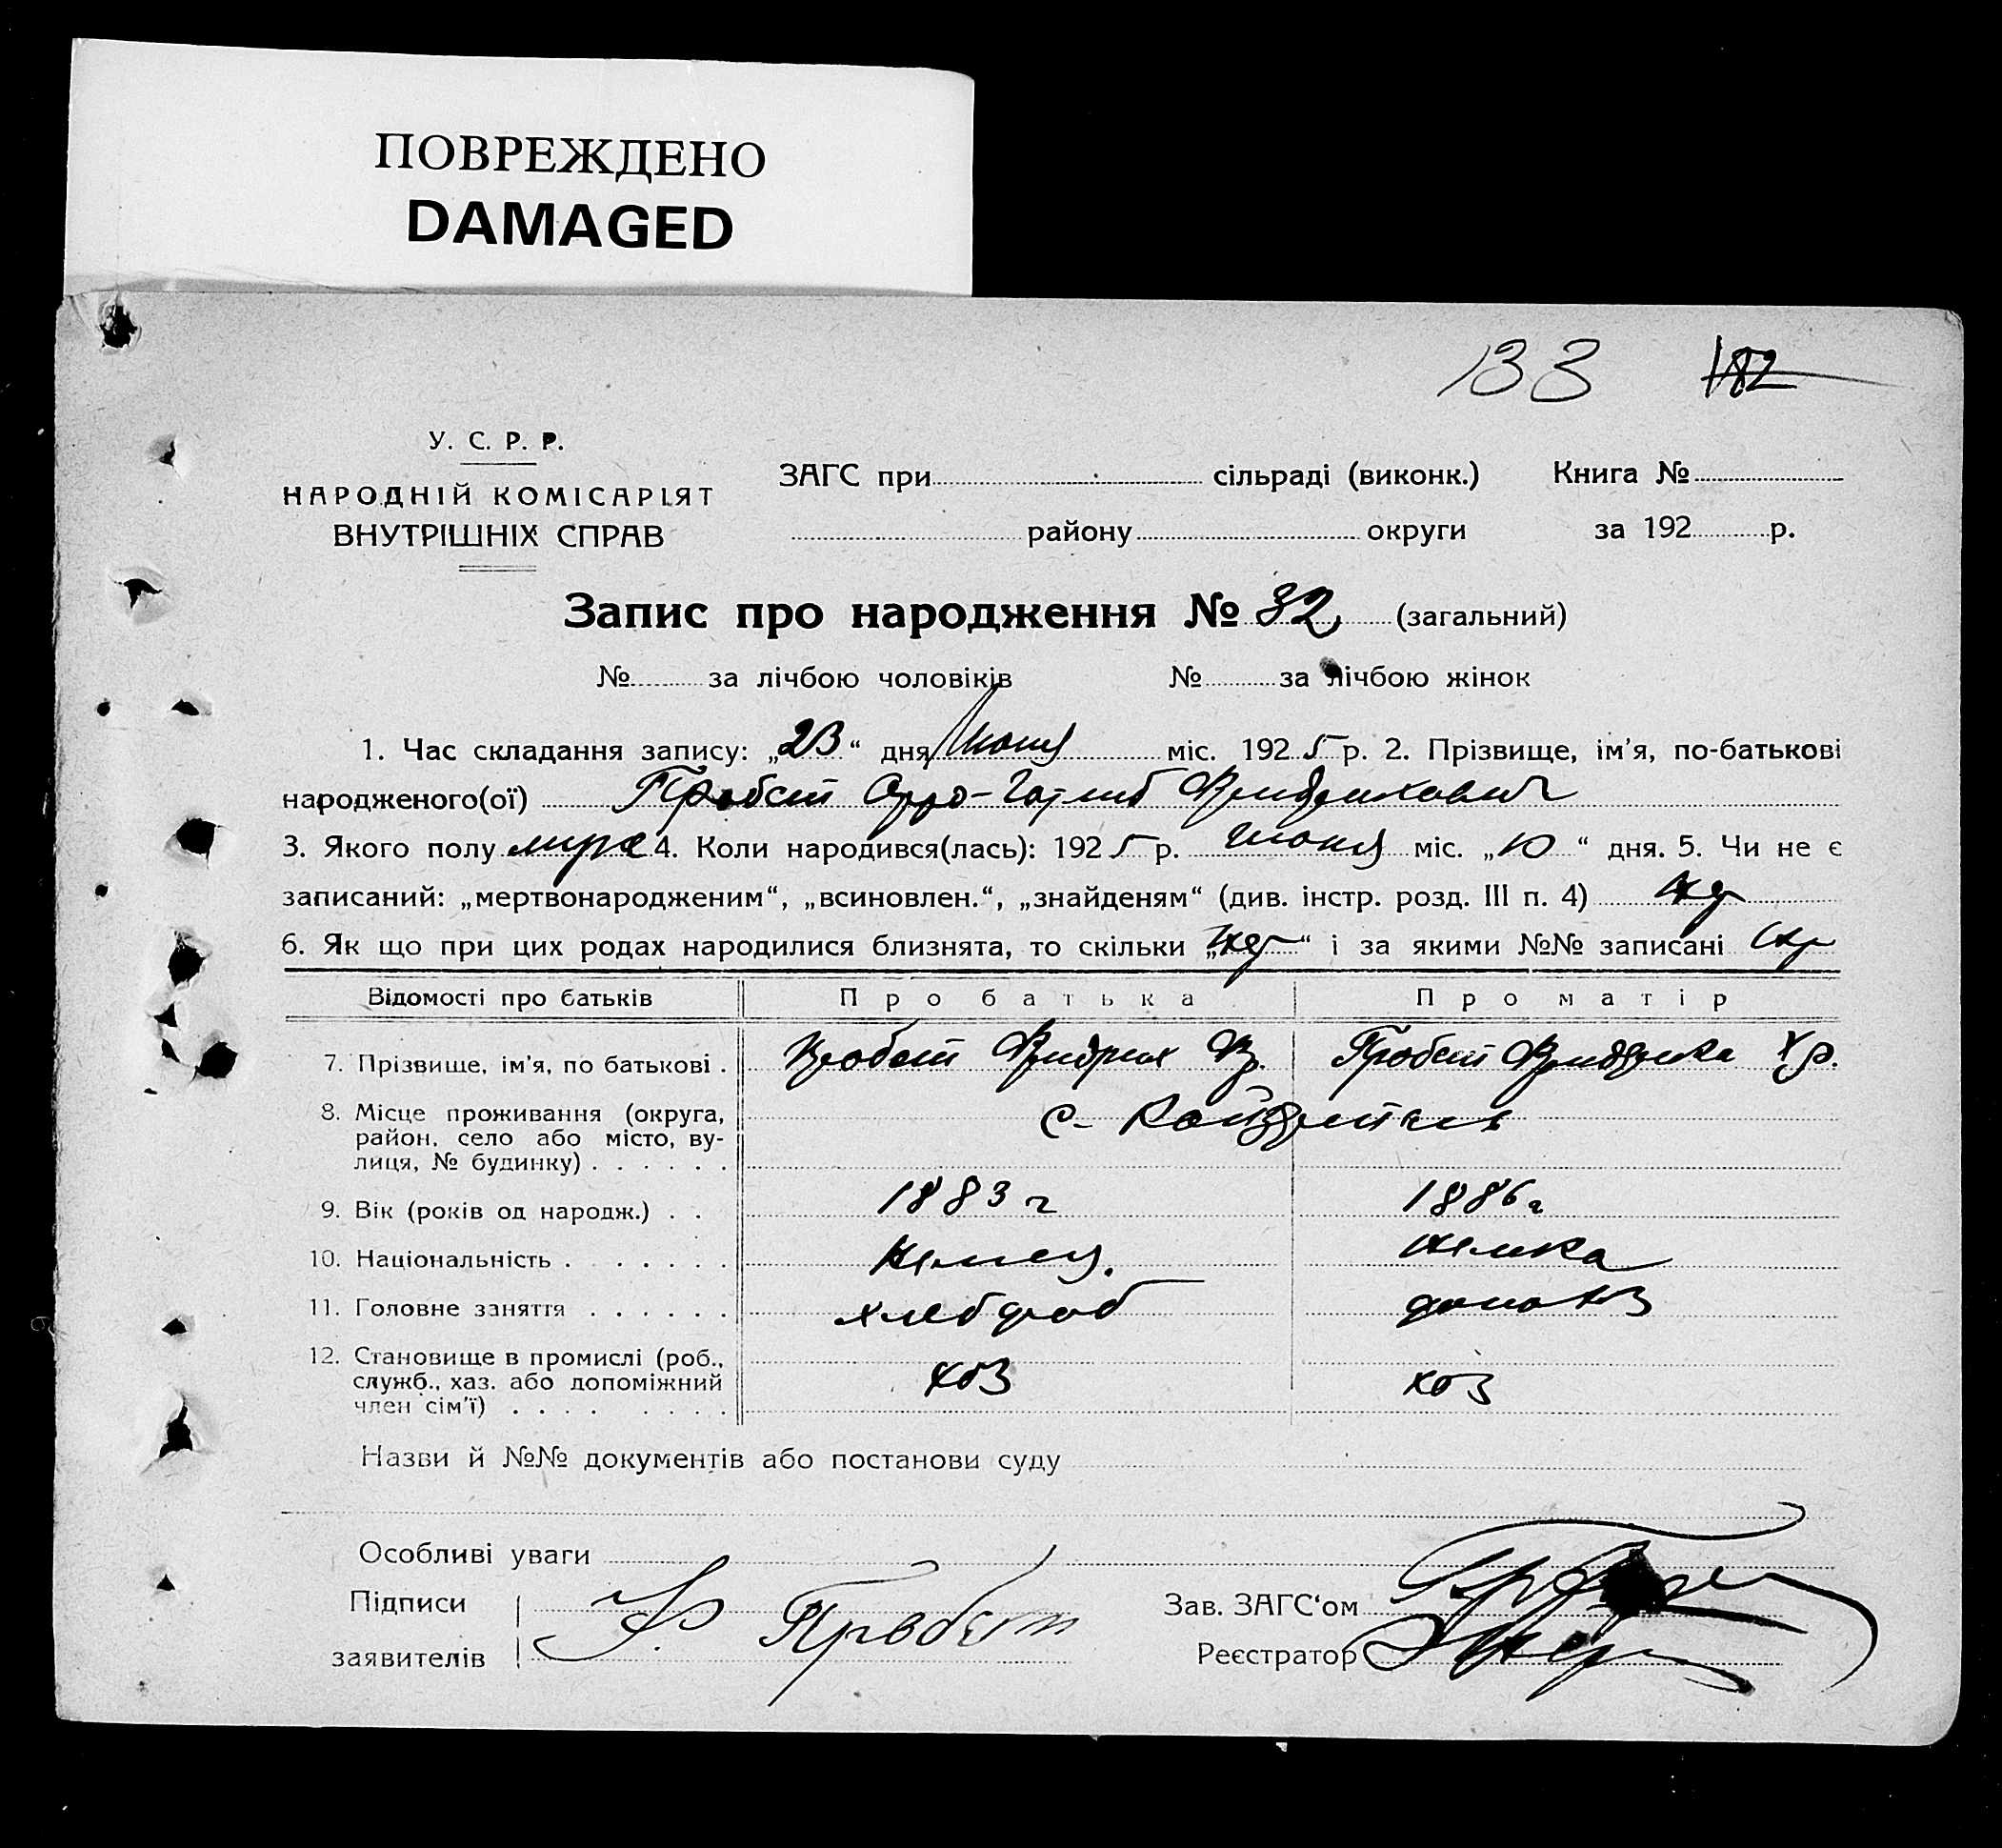 ПОВРЕЖДЕНО
DAMAGED
133 182
У. С. Р. Р.
НАРОДНІЙ КОМІСАРІЯТ
ВНУТРІШНІХ СПРАВ
ЗАГС при сільраді (виконк.) Книга №
району округи за 192 р.
Запис про народження № 32 (загальний)
№ за лічбою чоловіків № за лічбою жінок
1. Час складання запису: „23“ дня Июня міс. 1925 р. 2. Прізвище, ім'я, по-батькові
народженого(ої) Пробст Отто-Готлиб Фридрихович
3. Якого полу муж 4. Коли народився(лась): 1925 р. Июня міс. „10“ дня. 5. Чи не є
записаний: „мертвонародженим“, „всиновлен.“, „знайденям“ (див. інстр. розд. III п. 4)
6. Як що при цих родах народилися близнята, то скільки „ “ і за якими №№ записані
Відомості про батьків Про батька Про матір
7. Прізвище, ім'я, по батькові . Пробст Фридрих Фр. Пробст Фридрика Хр.
8. Місце проживання (округа, с.
район, село або місто, ву-
лиця, № будинку) . . . . . .
9. Вік (років од народж.) . . 1883 г 1886 г
10. Національність . . . . . . Немец. немка
11. Головне заняття . . . . . . хлебороб домохоз
12. Становище в промислі (роб.,
служб., хаз. або допоміжний хоз хоз
член сім'ї) . . . . . . . .
Назви й №№ документів або постанови суду
Особливі уваги
Підписи
заявителів Ф. Пробст
Зав. ЗАГС‘ом
Реєстратор